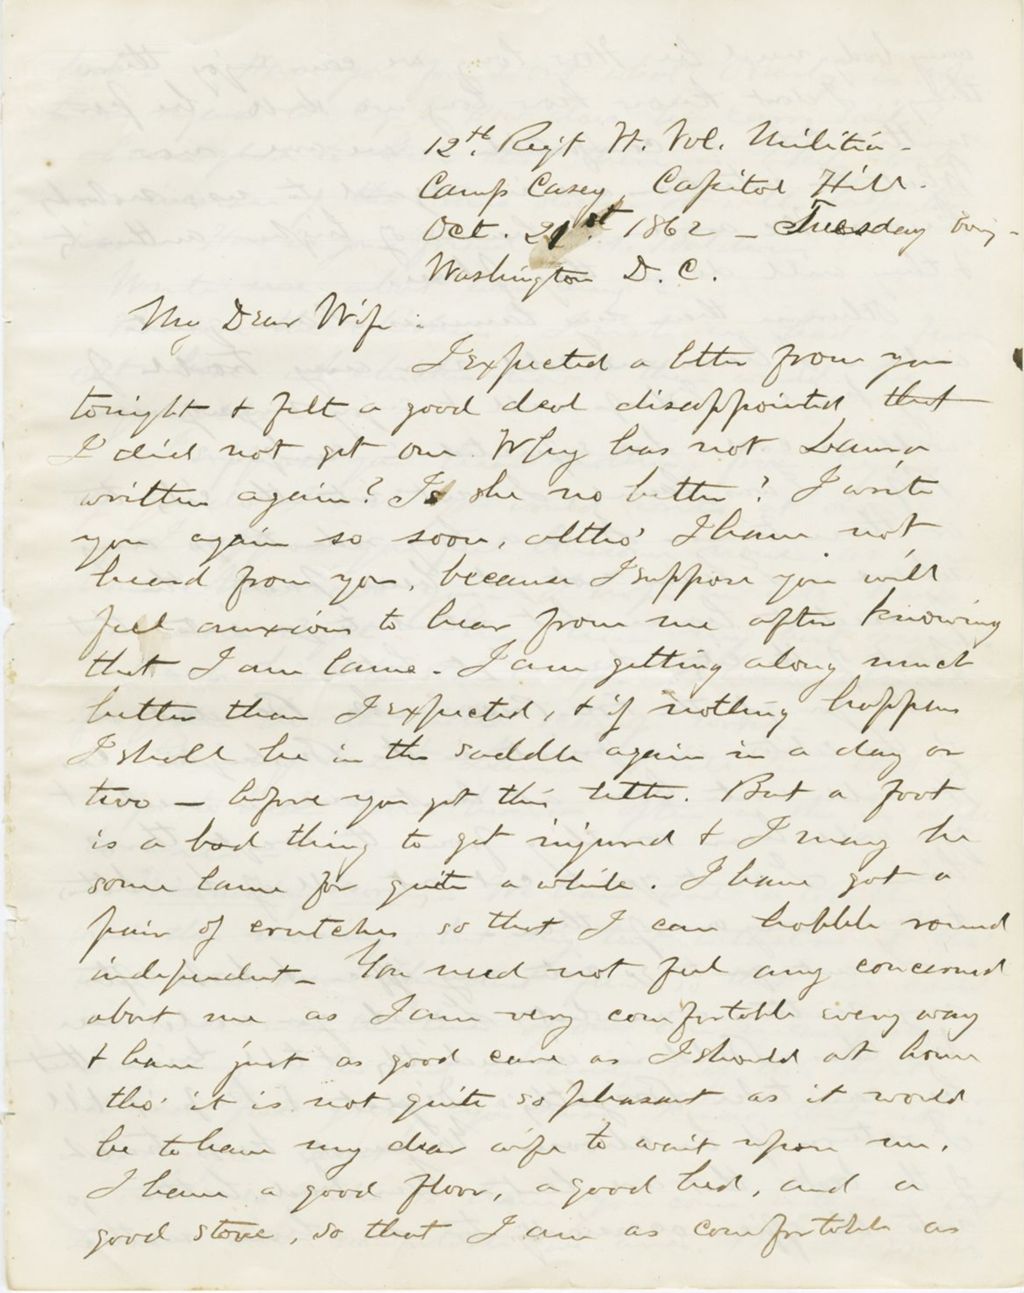 12th. Reg't Vt. Vol. Militia -
Camp Casey, Capitol Hill.
Oct. 21st 1862 - Tuesday Evng -
Washington D. C.
My Dear Wife:
I expected a letter from you
tonight & felt a good deal disappointed that
I did not get one. Why has not Laura
written again? Is she no better? I write
you again so soon, altho' I have not
heard from you, because I suppose you will
feel anxious to hear from me after knowing
that I am lame. I am getting along much
better than I expected, & if nothing happens
I shall be in the saddle again in a day or
two — before you get this letter. But a foot
is a bad thing to get injured & I may be
some lame for quite a while. I have got a
pair of crutches so that I can hobble round
independent - You need not feel any concerned
about me as I am very comfortable every way
& have just as good care as I should at home
tho' it is not quite so pleasant as it would
be to have my dear wife to wait upon me.
I have a good floor, a good bed, and a
good stove, so that I am as comfortable as